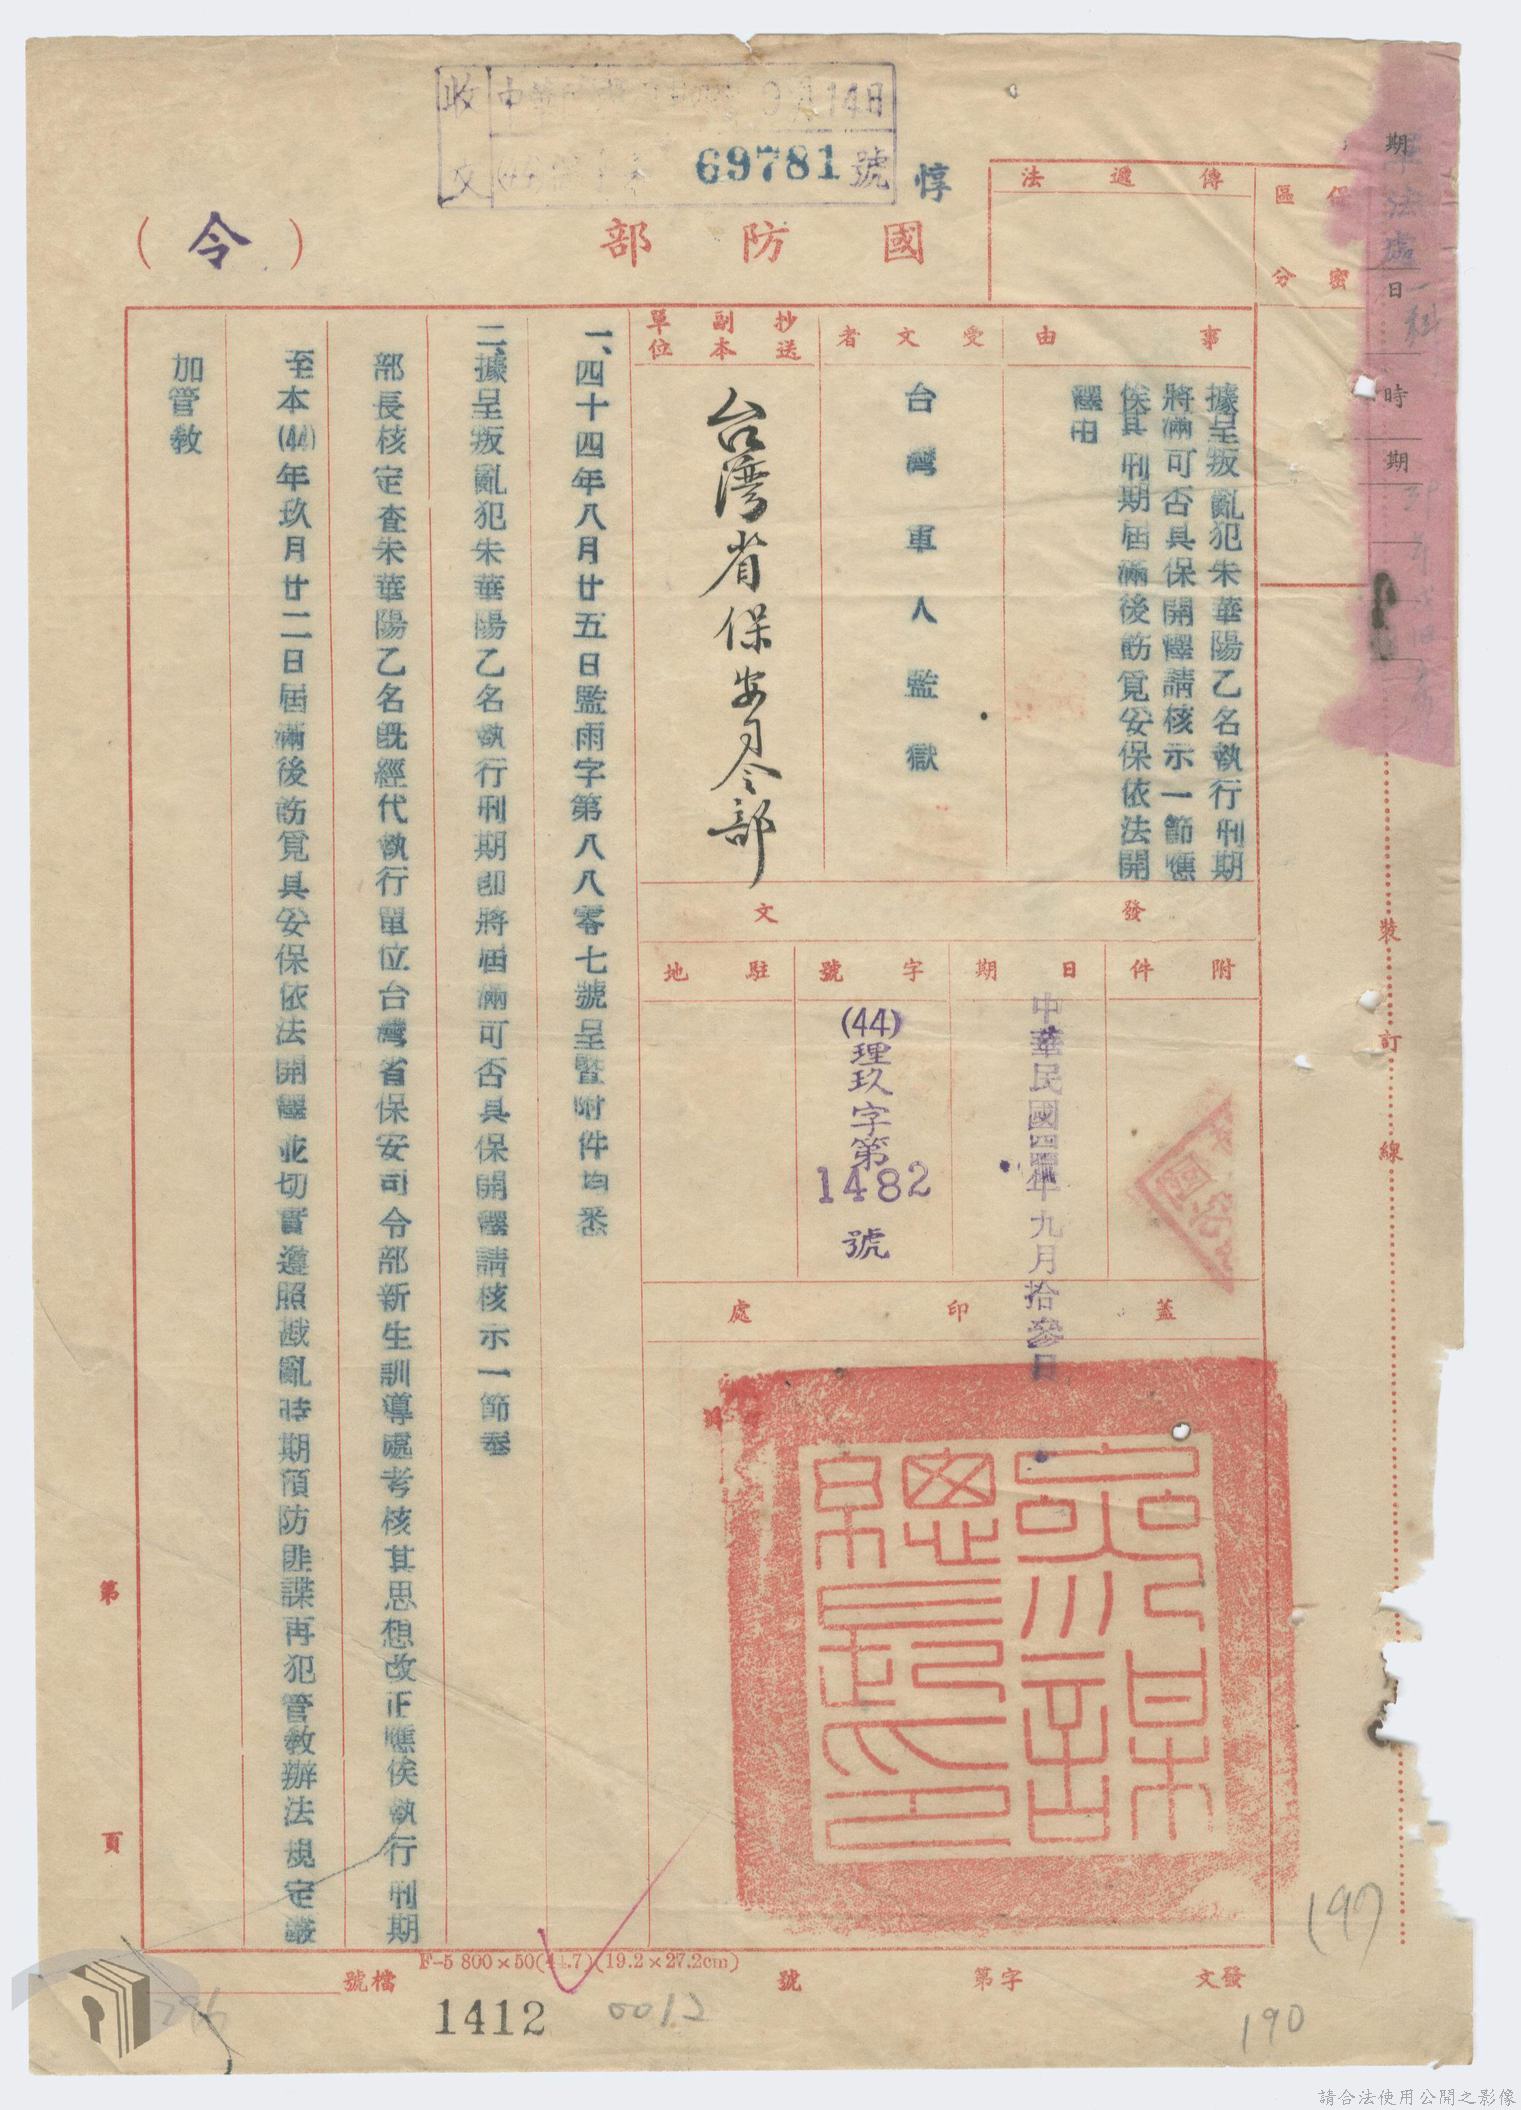 收 中華民國 9月14日
文 69781號
惇
國防部
(令)
傳遞法
保密
區分
軍法處
一科
期
日
時
期
事由
據呈叛亂犯朱華陽乙名執行刑期
將滿可否具保開釋請核示一節應
俟其刑期屆滿後飭覓妥保依法開
釋由
受文者
台灣軍人監獄
抄送副本單位
台灣省保安司令部
發文
附件
日期
中華民國四四年九月拾參日
字號
(44)理玖字第1482號
駐地
蓋印處
參謀總長印
一、四十四年八月廿五日監雨字第八八零七號呈暨附件均悉
二、據呈叛亂犯朱華陽乙名執行刑期即將屆滿可否具保開釋請核示一節奉
部長核定查朱華陽乙名既經代執行單位台灣省保安司令部新生訓導處考核其思想改正應俟執行刑期
至本(44)年玖月廿二日屆滿後飭覓具妥保依法開釋並切實遵照戡亂時期預防匪諜再犯管教辦法規定嚴
加管教
裝訂線
第頁
F-5 800×50(44.7)(19.2×27.2cm)
發文
字第
號
檔號
1412
0012
197
190
296
請合法使用公開之影像